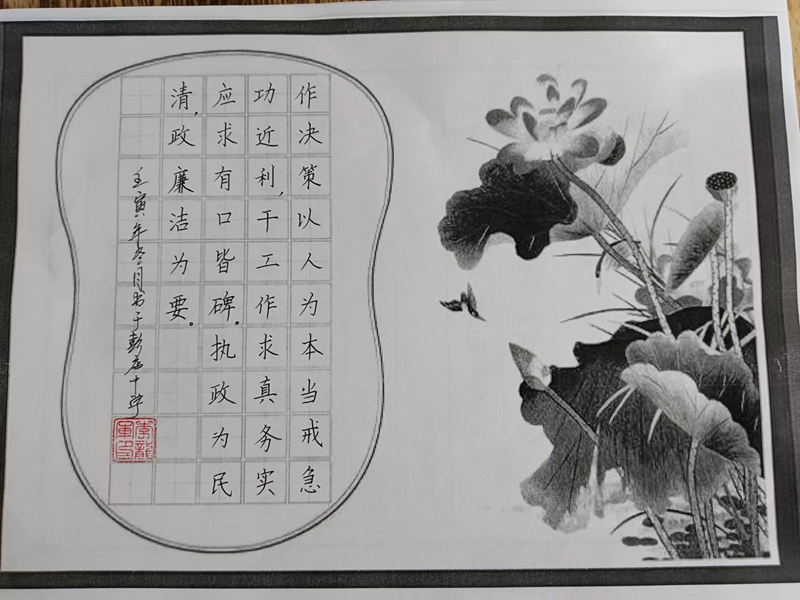 作决策以人为本当戒急
功近利,干工作求真务实
应求有口皆碑。执政为民
清,政廉洁为要。
壬寅年冬月书于彭店
李龍軍印